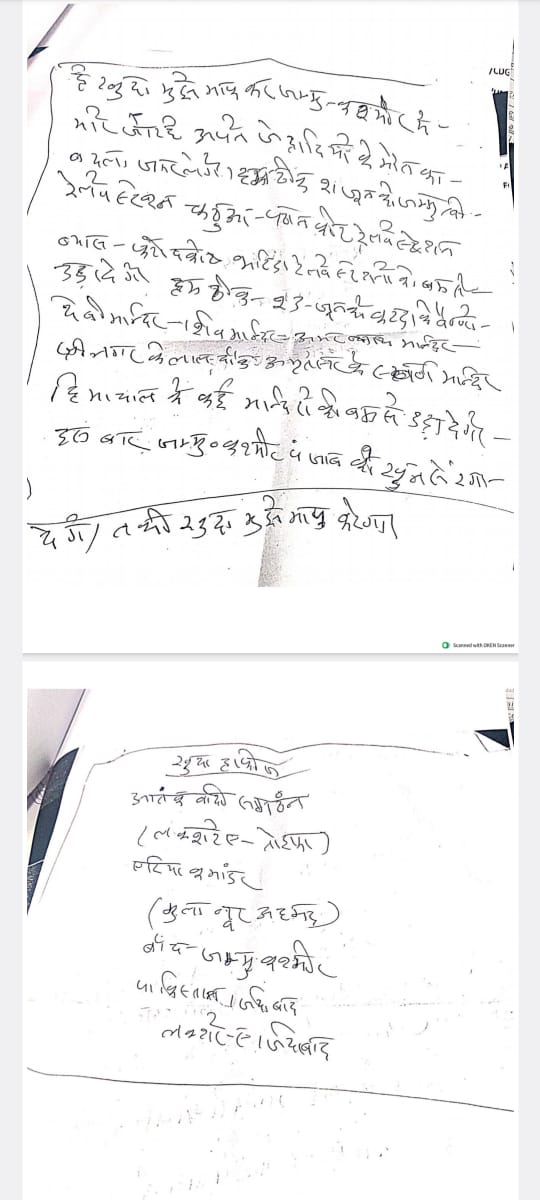 हे खुदा मुझे माफ कर जम्मु-कश्मीर मे-
मारे जा रहे अपने जेहादियों के मौत का-
बदला जरूर लेगे। हम ठीक जून को जम्मु की-
रेलवे स्टेशन कठुआ-पठानकोट रेलवे स्टेशन
ब्यास-फरीदकोट भटिंडा रेलवे स्टेशनो को बम से
उड़ा देगे हम ठीक-23-जून को कटड़ा के वैष्णो-
देवी मन्दिर-शिव मन्दिर-अमरनाथ मन्दिर-
श्रीनगर के लाल चौक अमृतसर के स्वर्ण मन्दिर
हिमाचाल के कई मन्दिरो को बम से उड़ा देगे-
इस बार जम्मु-कश्मीर पंजाब को खुन से रंगा-
देगे। तभी खुदा मुझे माफ करेगा।
Scanned with OKEN Scanner
खुदा हाफीज
आतंकवादी संगठन
(लश्करे ए-तोईफा)
एरिया कमांडर
(मुला नूर अहमद)
जम्मु-कश्मीर
पाकिस्तान। जिंदाबाद
लश्करे-ए। जिंदाबाद